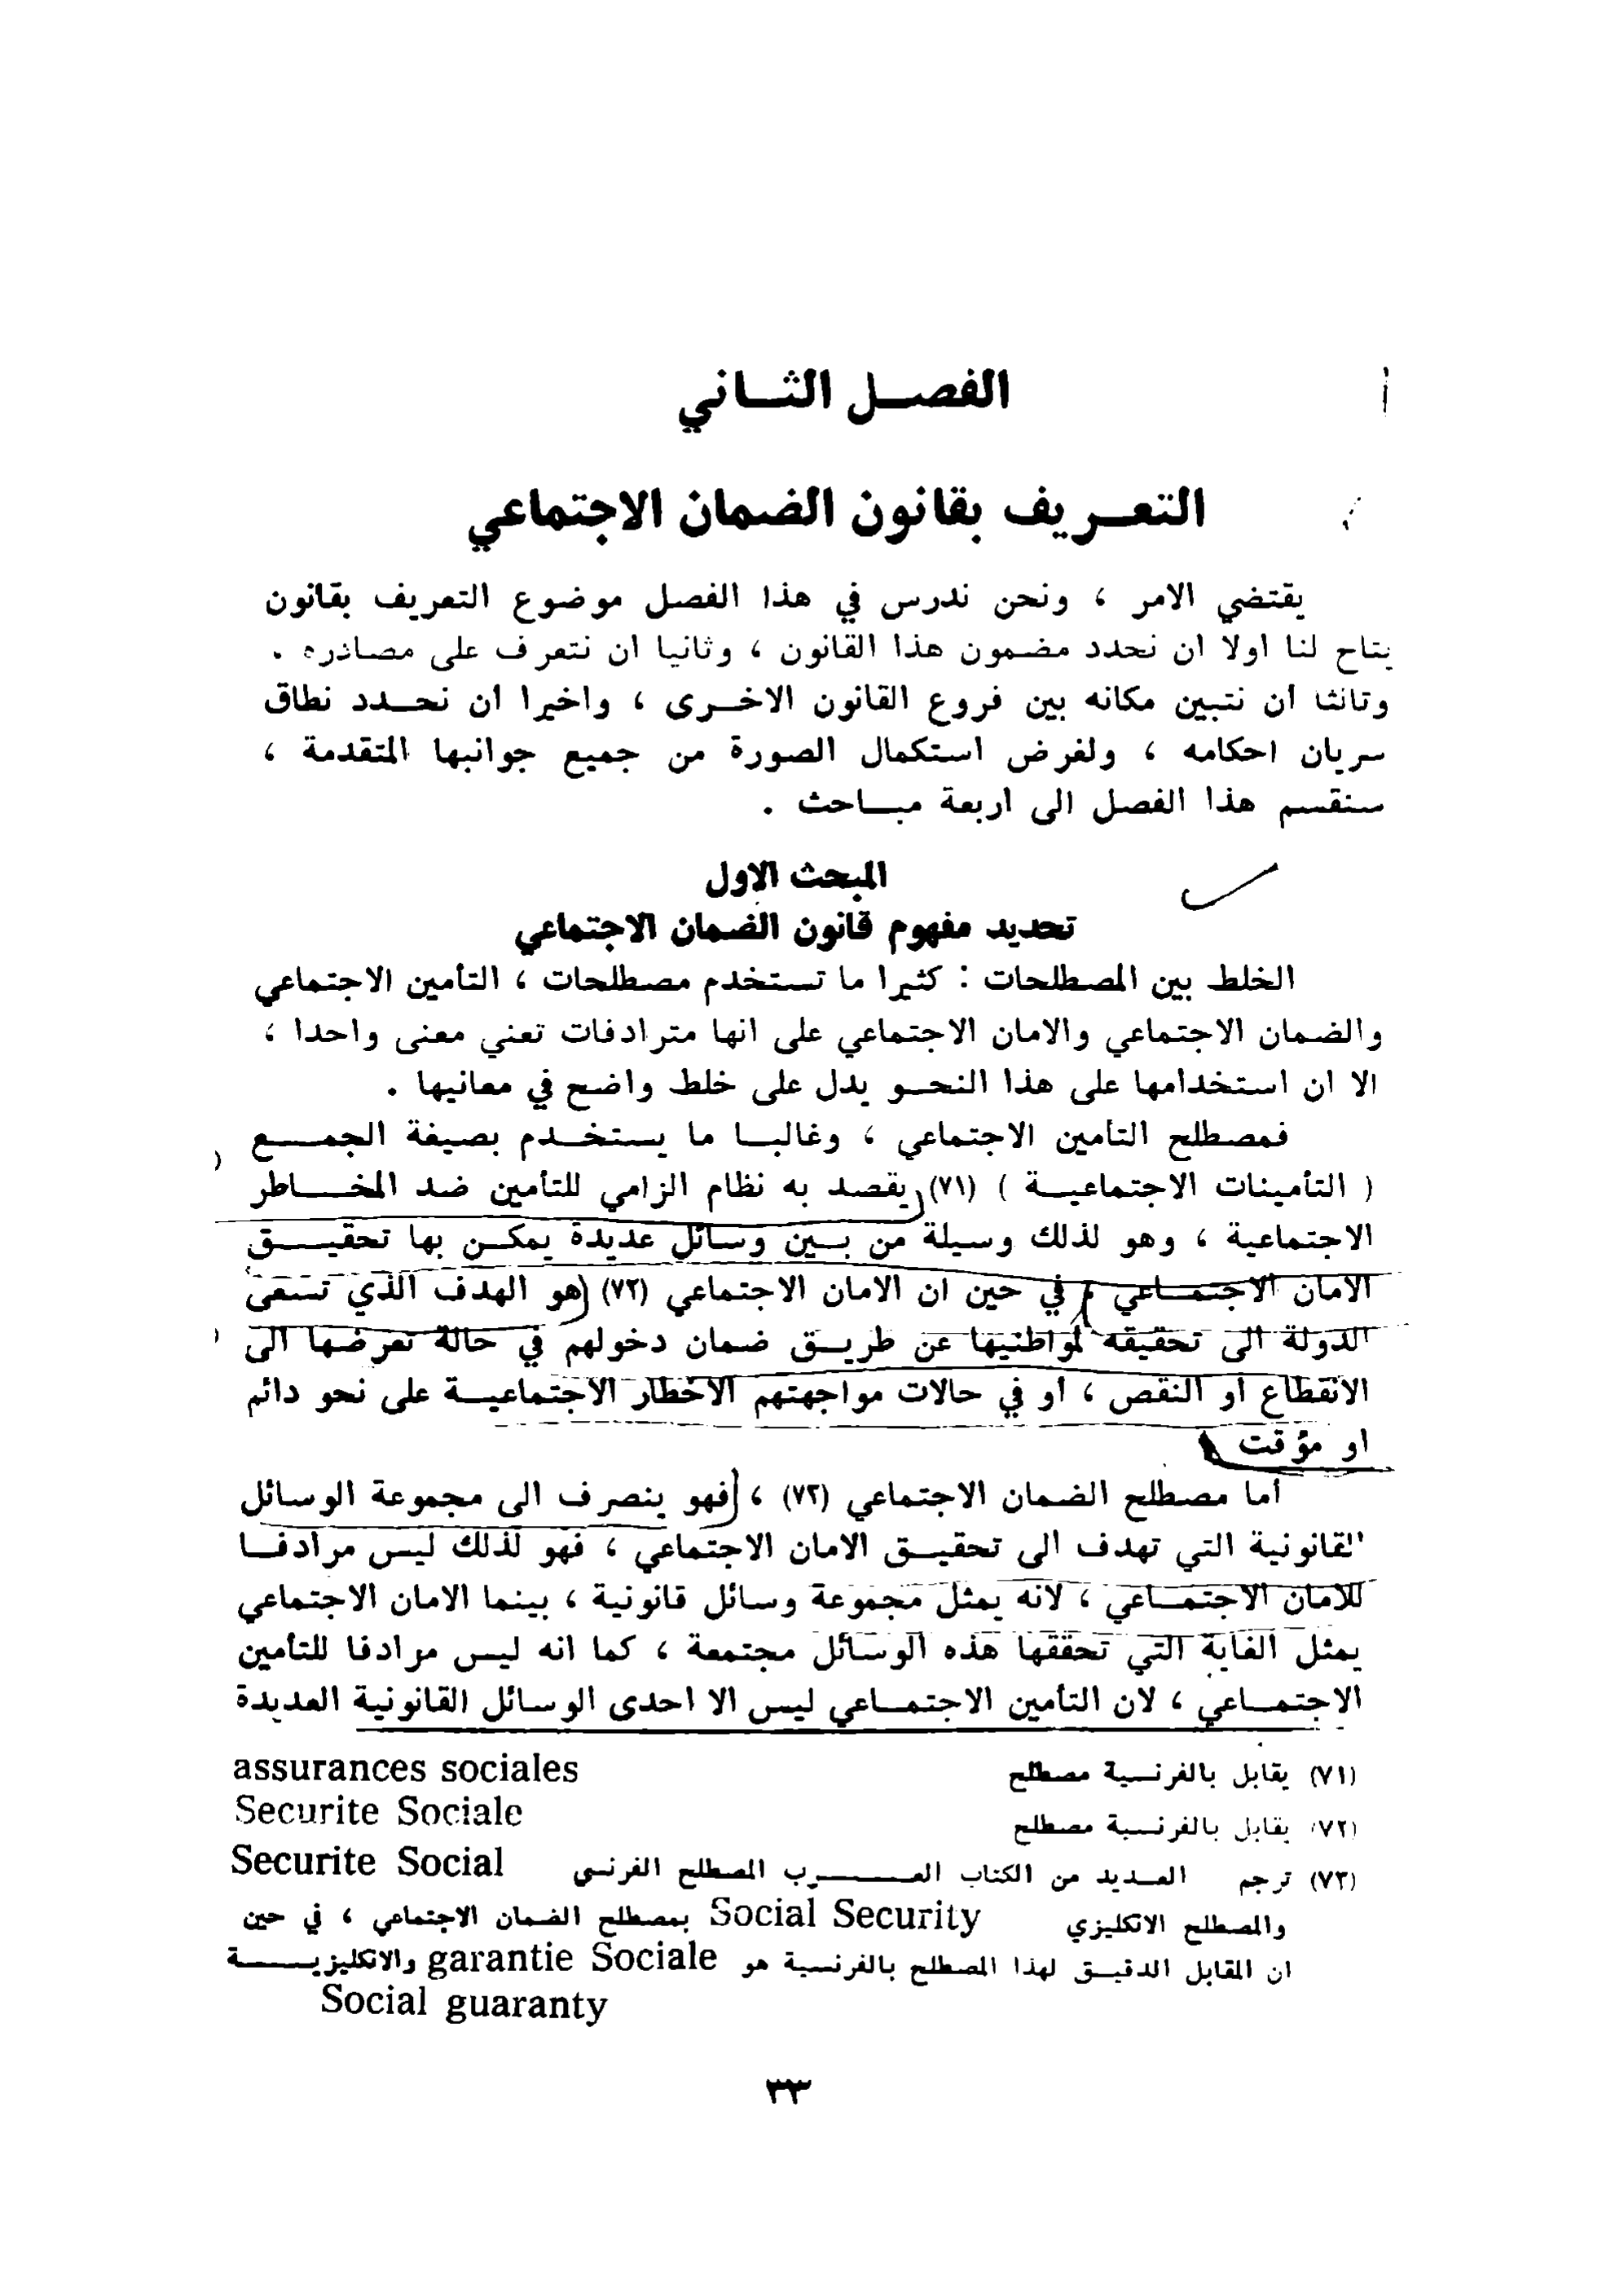 الفصل الثاني
التعريف بقانون الضمان الاجتماعي
يقتضي الامر ، ونحن ندرس في هذا الفصل موضوع التعريف بقانون
يتاح لنا اولا ان نحدد مضمون هذا القانون ، وثانيا ان نتعرف على مصادره .
وثالثا ان نتبين مكانه بين فروع القانون الاخرى ، واخيرا ان نحدد نطاق
سريان احكامه ، ولغرض استكمال الصورة من جميع جوانبها المتقدمة ،
سنقسم هذا الفصل الى اربعة مباحث .
المبحث الاول
تحديد مفهوم قانون الضمان الاجتماعي
الخلط بين المصطلحات : كثيرا ما تستخدم مصطلحات ، التأمين الاجتماعي
والضمان الاجتماعي والامان الاجتماعي على انها مترادفات تعني معنى واحدا ،
الا ان استخدامها على هذا النحو يدل على خلط واضح في معانيها .
فمصطلح التأمين الاجتماعي ، وغالبا ما يستخدم بصيغة الجمع
( التأمينات الاجتماعية ) (٧١) يقصد به نظام الزامي للتأمين ضد المخاطر
الاجتماعية ، وهو لذلك وسيلة من بين وسائل عديدة يمكن بها تحقيق
الامان الاجتماعي ، في حين ان الامان الاجتماعي (٧٢) هو الهدف الذي تسعى
الدولة الى تحقيقه لمواطنيها عن طريق ضمان دخولهم في حالة تعرضها الى
الانقطاع أو النقص ، أو في حالات مواجهتهم الاخطار الاجتماعية على نحو دائم
او مؤقت
أما مصطلح الضمان الاجتماعي (٧٣) ، فهو ينصرف الى مجموعة الوسائل
القانونية التي تهدف الى تحقيق الامان الاجتماعي ، فهو لذلك ليس مرادفا
للامان الاجتماعي ، لانه يمثل مجموعة وسائل قانونية ، بينما الامان الاجتماعي
يمثل الغاية التي تحققها هذه الوسائل مجتمعة ، كما انه ليس مرادفا للتأمين
الاجتماعي ، لان التأمين الاجتماعي ليس الا احدى الوسائل القانونية العديدة
(٧١) يقابل بالفرنسية مصطلح assurances sociales
(٧٢) يقابل بالفرنسية مصطلح Securite Sociale
(٧٣) ترجم العديد من الكتاب العرب المصطلح الفرنسي Securite Social
والمصطلح الانكليزي Social Security بمصطلح الضمان الاجتماعي ، في حين
ان المقابل الدقيق لهذا المصطلح بالفرنسية هو garantie Sociale والانكليزية
Social guaranty
٣٣